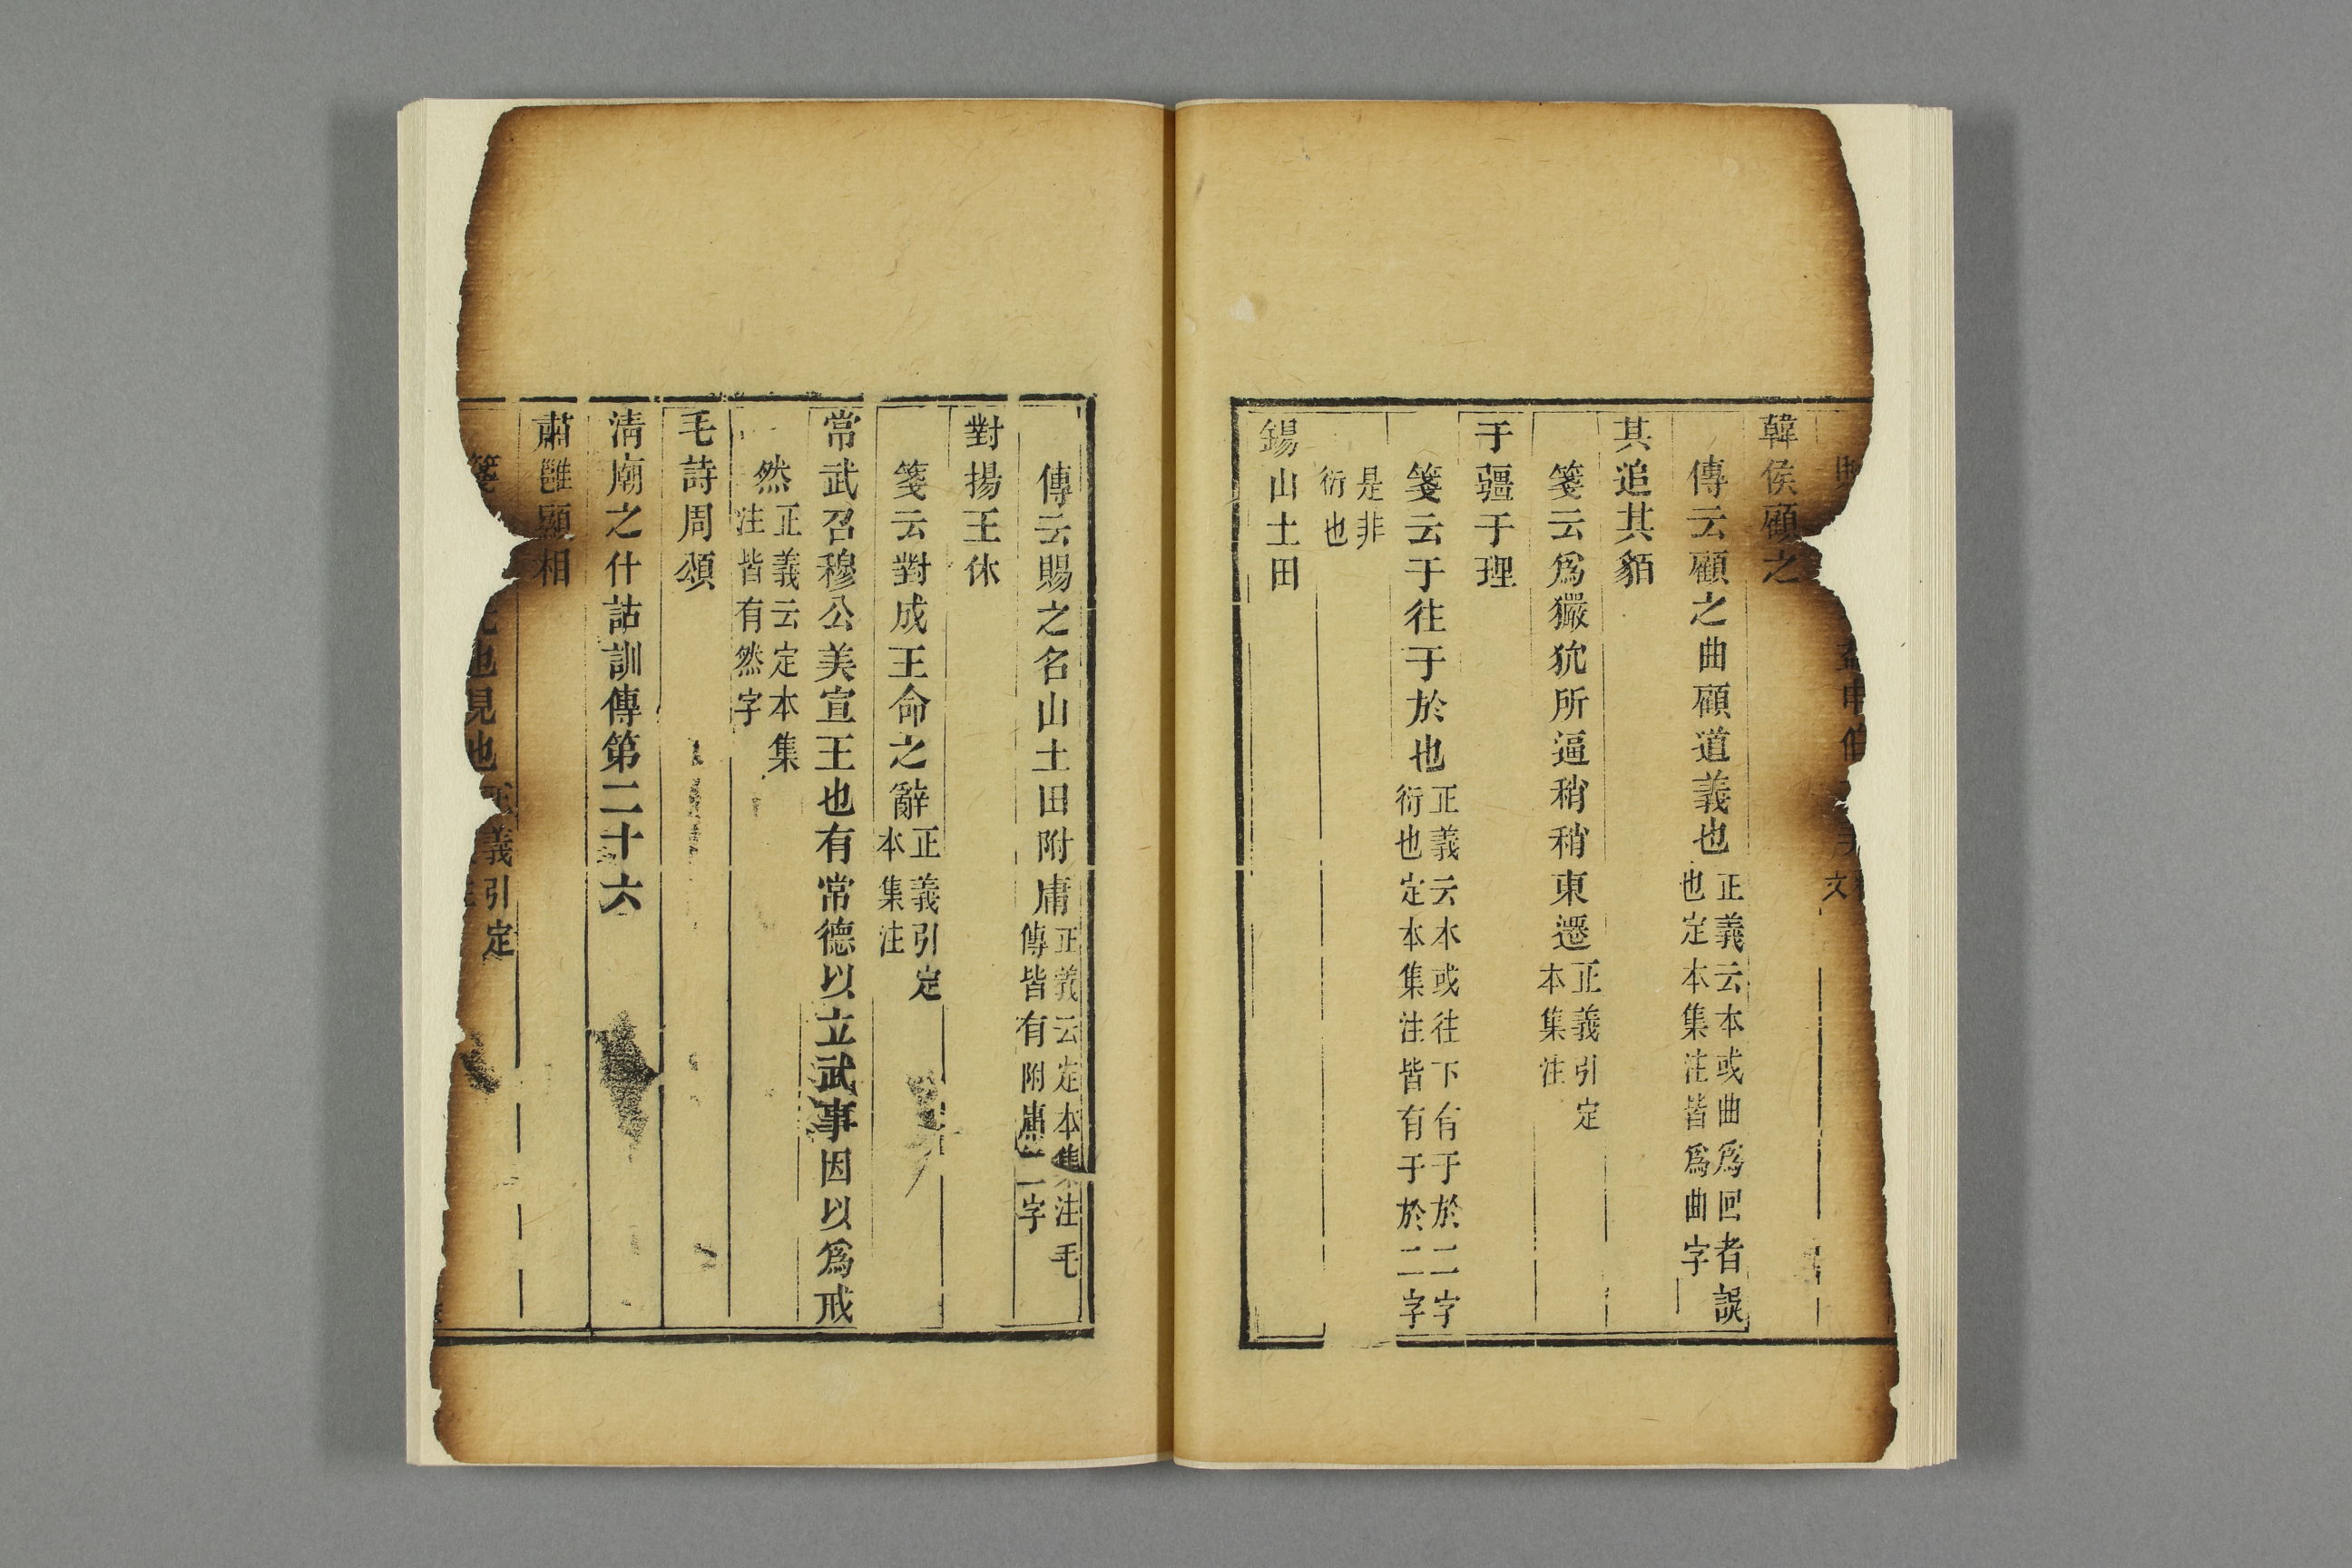 申伯
文
韓侯顧之
傳云顧之曲顧道義也正義云本或曲爲回者誤也定本集注皆爲曲字
其追其貊
箋云爲玁狁所逼稍稍東遷正義引定本集注
于疆于理
箋云于往于於也正義云本或往下有于於二字衍也定本集注皆有于於二字
是非衍也
錫山土田
傳云賜之名山土田附庸正義云定本集注毛傳皆有附庸二字
對揚王休
箋云對成王命之辭正義引定本集注
常武召穆公美宣王也有常德以立武事因以爲戒
然正義云定本集注皆有然字
毛詩周頌
清廟之什詁訓傳第二十六
肅雝顯相
箋 也見也正義引定